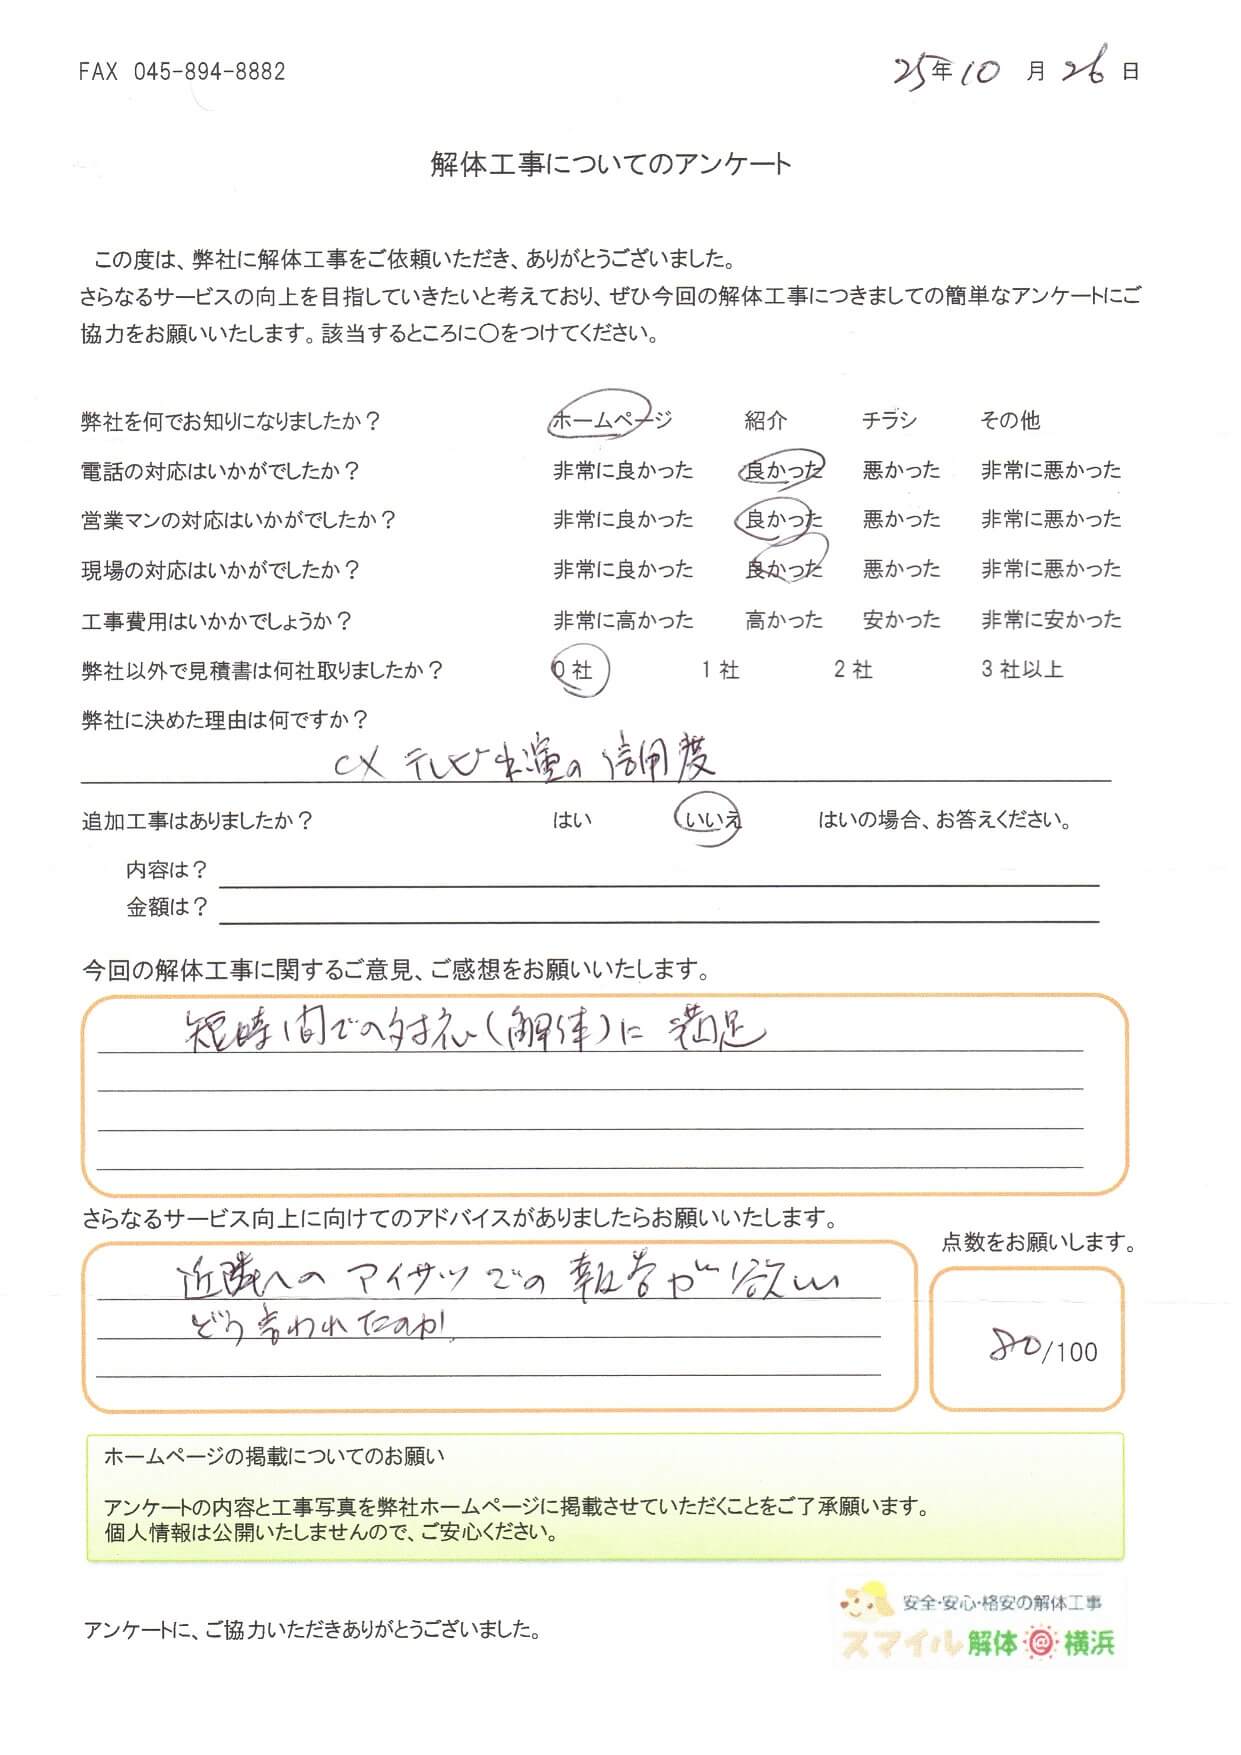 FAX 045-894-8882
25年10月26日
解体工事についてのアンケート
この度は、弊社に解体工事をご依頼いただき、ありがとうございました。
さらなるサービスの向上を目指していきたいと考えており、ぜひ今回の解体工事につきましての簡単なアンケートにご
協力をお願いいたします。該当するところに〇をつけてください。
弊社を何でお知りになりましたか？ ホームページ 紹介 チラシ その他
電話の対応はいかがでしたか？ 非常に良かった 良かった 悪かった 非常に悪かった
営業マンの対応はいかがでしたか？ 非常に良かった 良かった 悪かった 非常に悪かった
現場の対応はいかがでしたか？ 非常に良かった 良かった 悪かった 非常に悪かった
工事費用はいかかでしょうか？ 非常に高かった 高かった 安かった 非常に安かった
弊社以外で見積書は何社取りましたか？ 0 社 1 社 2 社 3 社以上
弊社に決めた理由は何ですか？
CX テレビ出演の信用度
追加工事はありましたか？ はい いいえ はいの場合、お答えください。
内容は？
金額は？
今回の解体工事に関するご意見、ご感想をお願いいたします。
短時間での対応(解体)に 満足
さらなるサービス向上に向けてのアドバイスがありましたらお願いいたします。
点数をお願いします。
近隣への アイサツでの 報告が欲しい
どう言われたのか!
80/100
ホームページの掲載についてのお願い
アンケートの内容と工事写真を弊社ホームページに掲載させていただくことをご了承願います。
個人情報は公開いたしませんので、ご安心ください。
アンケートに、ご協力いただきありがとうございました。
安全・安心・格安の解体工事
スマイル解体@横浜